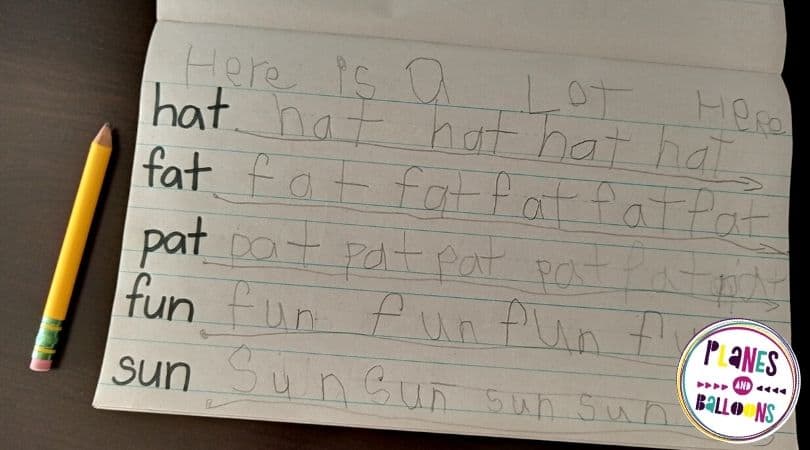 Here is a Lot Here
hat hat hat hat hat
fat fat fat fat fat fat
pat pat pat pat pat
fun fun fun fun
sun Sun Sun sun sun
PLANES
AND
BALLOONS